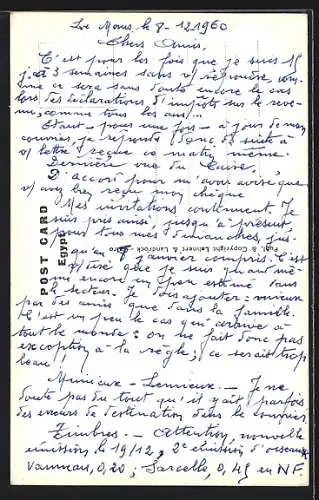 Le Mans, le 8-12-1960
Chers Amis,
C'est pour les fois que je suis 15
j. à 3 semaines sans v/ répondre, com-
me ce sera sans doute encore le cas
lors des déclarations d'impôts sur le reve-
nu, comme tous les ans...
Etant - pour une fois - à jour de mon
courrier, je réponds donc de suite à
v/ lettre reçue ce matin même.
Dernière vue du Caire.
D'accord pour m'avoir avisé que
v/ avez bien reçu mon chèque
Mes invitations continuent. Je
suis pris ainsi, jusqu'à présent,
pour tous mes dimanches, jus-
qu'au 8 janvier compris. C'est
v/ dire que je suis quand mê-
me encore un peu estimé dans
le secteur. Je dois ajouter : mieux
par des amis que dans la famille.
C'est un peu le cas qui arrive à
tout le monde : on ne fait donc pas
exception à la règle ; ce serait trop
beau !
Mimieux - Lemieux. - Je ne
doute pas du tout qu'il y ait parfois
des erreurs de destination dans le courrier.
Timbres. - Attention, nouvelle
émission le 19/12, 2e émission d'oiseaux
vanneau, 0,20 ; Sarcelle, 0,45 en NF.
POST CARD
Egypt
Publ. & Copyright Lehnert & Landrock -